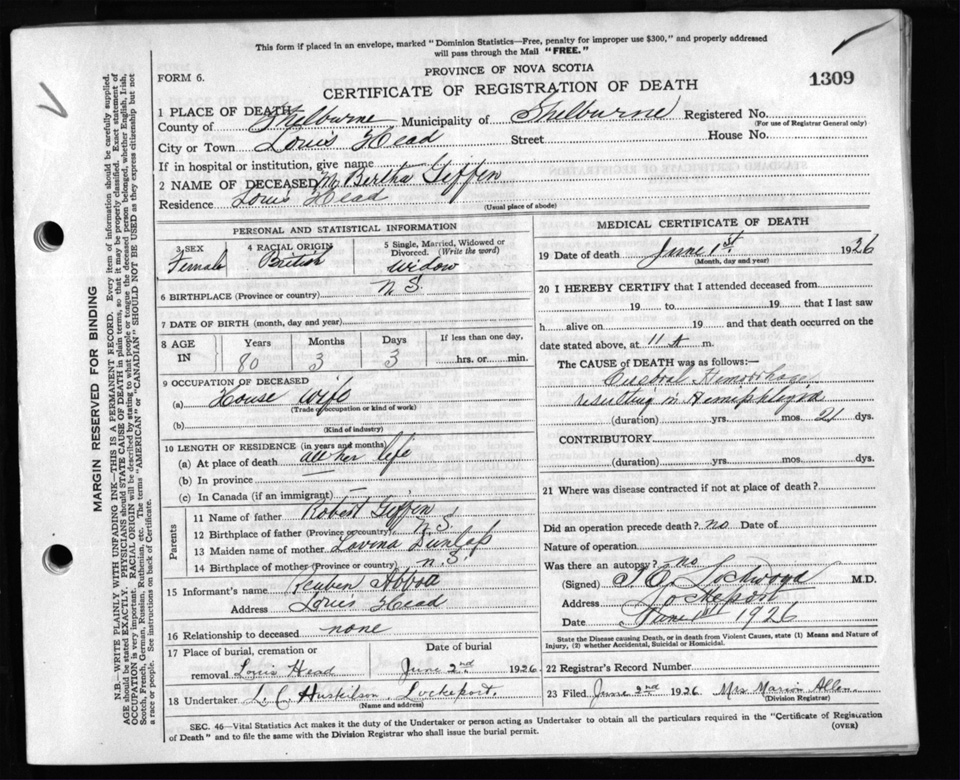 This form if placed in an envelope, marked "Dominion Statistics—Free, penalty for improper use $300," and properly addressed
will pass through the Mail "FREE."
PROVINCE OF NOVA SCOTIA
FORM 6.
CERTIFICATE OF REGISTRATION OF DEATH
1309
1 PLACE OF DEATH
County of Shelburne Municipality of Shelburne Registered No.
(For use of Registrar General only)
City or Town Louis Head Street House No.
If in hospital or institution, give name
2 NAME OF DECEASED M Bertha Giffin
Residence Louis Head
(Usual place of abode)
PERSONAL AND STATISTICAL INFORMATION
3 SEX Female
4 RACIAL ORIGIN British
5 Single, Married, Widowed or Divorced. (Write the word) Widow
6 BIRTHPLACE (Province or country) N S.
7 DATE OF BIRTH (month, day and year)
8 AGE IN
Years Months Days If less than one day,
80 3 3 hrs. or min.
9 OCCUPATION OF DECEASED
(a) House Wife
(Trade occupation or kind of work)
(b)
(Kind of industry)
10 LENGTH OF RESIDENCE (in years and months)
(a) At place of death all her life
(b) In province
(c) In Canada (if an immigrant)
Parents
11 Name of father Robert Giffin
12 Birthplace of father (Province or country) N S.
13 Maiden name of mother Lavina Dunlap
14 Birthplace of mother (Province or country) N. S
15 Informant's name Reuben
Address Louis Head
16 Relationship to deceased none
17 Place of burial, cremation or removal Louis Head
Date of burial June 2nd 1926
18 Undertaker L. C. Huskilson, Lockeport.
(Name and address)
MEDICAL CERTIFICATE OF DEATH
19 Date of death June 1st 1926
(Month, day and year)
20 I HEREBY CERTIFY that I attended deceased from
19 to 19 that I last saw
h alive on 19 and that death occurred on
date stated above, at 11 A m.
The CAUSE of DEATH was as follows:—
Cerebral Hemorrhage
resulting in Hemiphlegia
(duration) yrs. mos. 21 dys.
CONTRIBUTORY
(duration) yrs. mos. dys.
21 Where was disease contracted if not at place of death?
Did an operation precede death? no Date of
Nature of operation
Was there an autopsy? no
(Signed) Lockwood M.D.
Address Lockeport
Date June 1 1926
State the Disease causing Death, or in death from Violent Causes, state (1) Means and Nature of
Injury, (2) whether Accidental, Suicidal or Homicidal.
22 Registrar's Record Number
23 Filed June 2nd 1926 Mrs Marion Allen.
(Division Registrar)
SEC. 46—Vital Statistics Act makes it the duty of the Undertaker or person acting as Undertaker to obtain all the particulars required in the "Certificate of Registration
of Death" and to file the same with the Division Registrar who shall issue the burial permit.
(OVER)
MARGIN RESERVED FOR BINDING
N.B.—WRITE PLAINLY WITH UNFADING INK—THIS IS A PERMANENT RECORD. Every item of information should be carefully supplied.
AGE should be stated EXACTLY. PHYSICIANS should STATE CAUSE OF DEATH in plain terms, so that it may be properly classified. Exact statement of
OCCUPATION is very important. RACIAL ORIGIN will be described by stating to what people or tongue the deceased person belonged, whether English, Irish,
Scotch, French, German, Russian, Ruthenian, etc. The terms "AMERICAN" or "CANADIAN" SHOULD NOT BE USED as they express citizenship but not
a race or people. See instructions on back of Certificate.